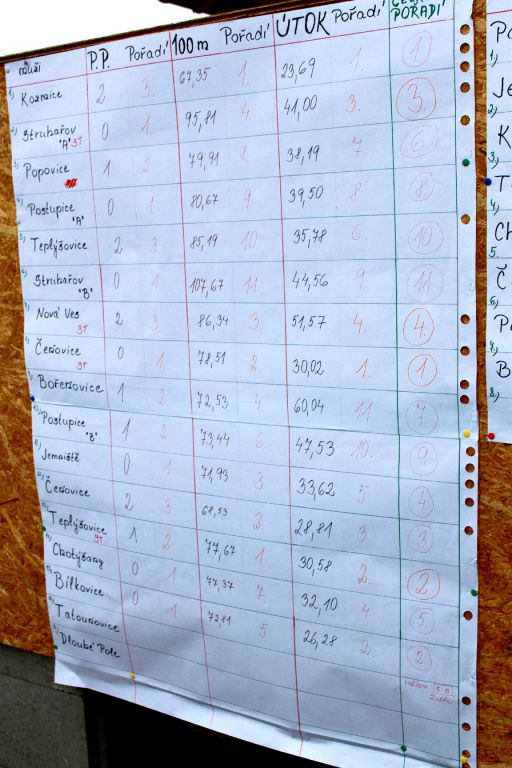 muži P.P. Pořadí 100 m Pořadí ÚTOK Pořadí CELK. POŘADÍ
1) Kozmice 2 3. 67,35 1. 23,69 1. 1
2) Struhařov "A" ST 0 1. 95,81 4. 41,00 3. 3.
3) Popovice 1 2 79,91 8. 38,19 7 6
4) Postupice "A" 0 1 80,67 9. 39,50 8. 8
5) Teplýšovice 2 3. 85,19 10 35,78 6. 10
6) Struhařov "B" 0 1. 107,67 11. 44,56 9. 11
7) Nová Ves ST 2 3. 86,34 3. 51,57 4. 4
8) Čeňovice ST 0 1. 78,51 2. 30,02 1. 1
9) Bořeňovice 1 2 72,53 4 60,04 11. 7
10) Postupice "B" 1 2 73,44 6. 47,53 10. 9
11) Jemniště 0 1. 71,93 3. 33,62 5 4
12) Čeňovice 2 3 68,53 2. 28,81 3 3
13) Teplýšovice ST 1 2 77,67 1. 30,58 2. 2
14) Chotýšany 0 1. 77,37 7 32,10 4 5
15) Bílkovice 0 1. 72,81 5 26,28 2. 2
16) Tatouňovice
17) Dlouhé Pole
1)
2)
K
3)
4)
5.
Č
6)
7)
B
8)